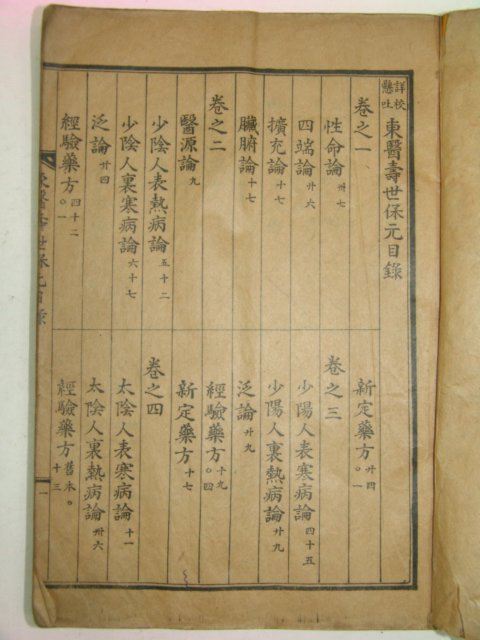 詳校懸吐 東醫壽世保元目錄
卷之一
性命論 卅七
四端論 廿六
擴充論 十七
臟腑論 十七
卷之二
醫源論 九
少陰人表熱病論 五十二
少陰人裏寒病論 六十七
泛論 廿四
經驗藥方 四十二 ○一
新定藥方 廿四 ○一
卷之三
少陽人表寒病論 四十五
少陽人裏熱病論 廿九
泛論 廿九
經驗藥方 十九 ○四
新定藥方 十七
卷之四
太陰人表寒病論 十一
太陰人裏熱病論 卅六
經驗藥方 舊本○ 十三
東醫壽世保元目錄
一